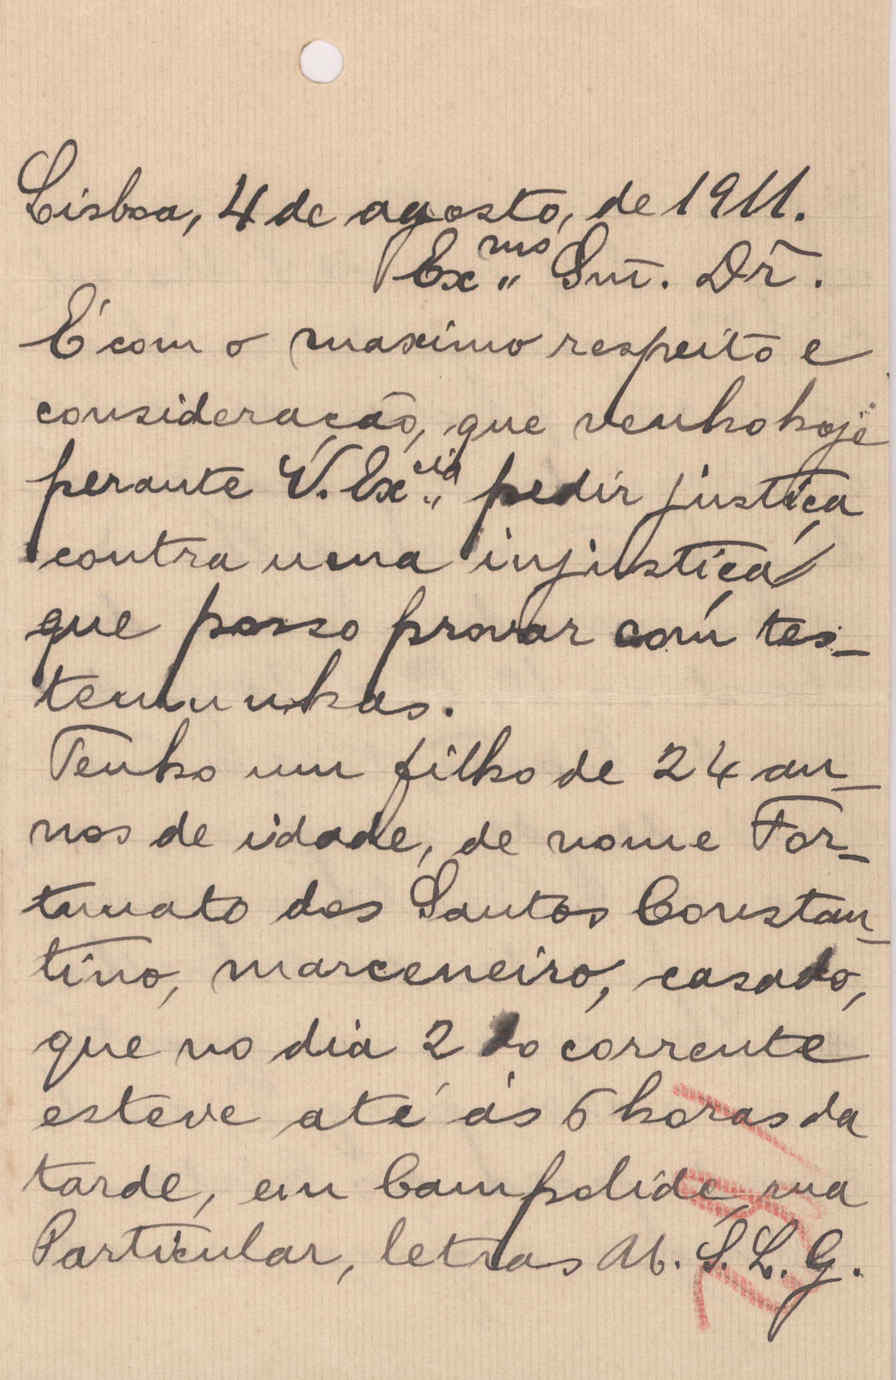 Lisboa, 4 de agosto, de 1911.
Ex.mo Snr. Dr.
É com o maximo respeito e
consideração, que venho hoje
perante V. Ex.cia pedir justiça
contra uma injustiça
que posso provar com tes-
temunhas.
Tenho um filho de 24 an-
nos de idade, de nome For-
tunato dos Santos Constan-
tino, marceneiro, casado,
que no dia 2 do corrente
esteve até ás 6 horas da
tarde, em Campolide, rua
Particular, letras S. L. G.